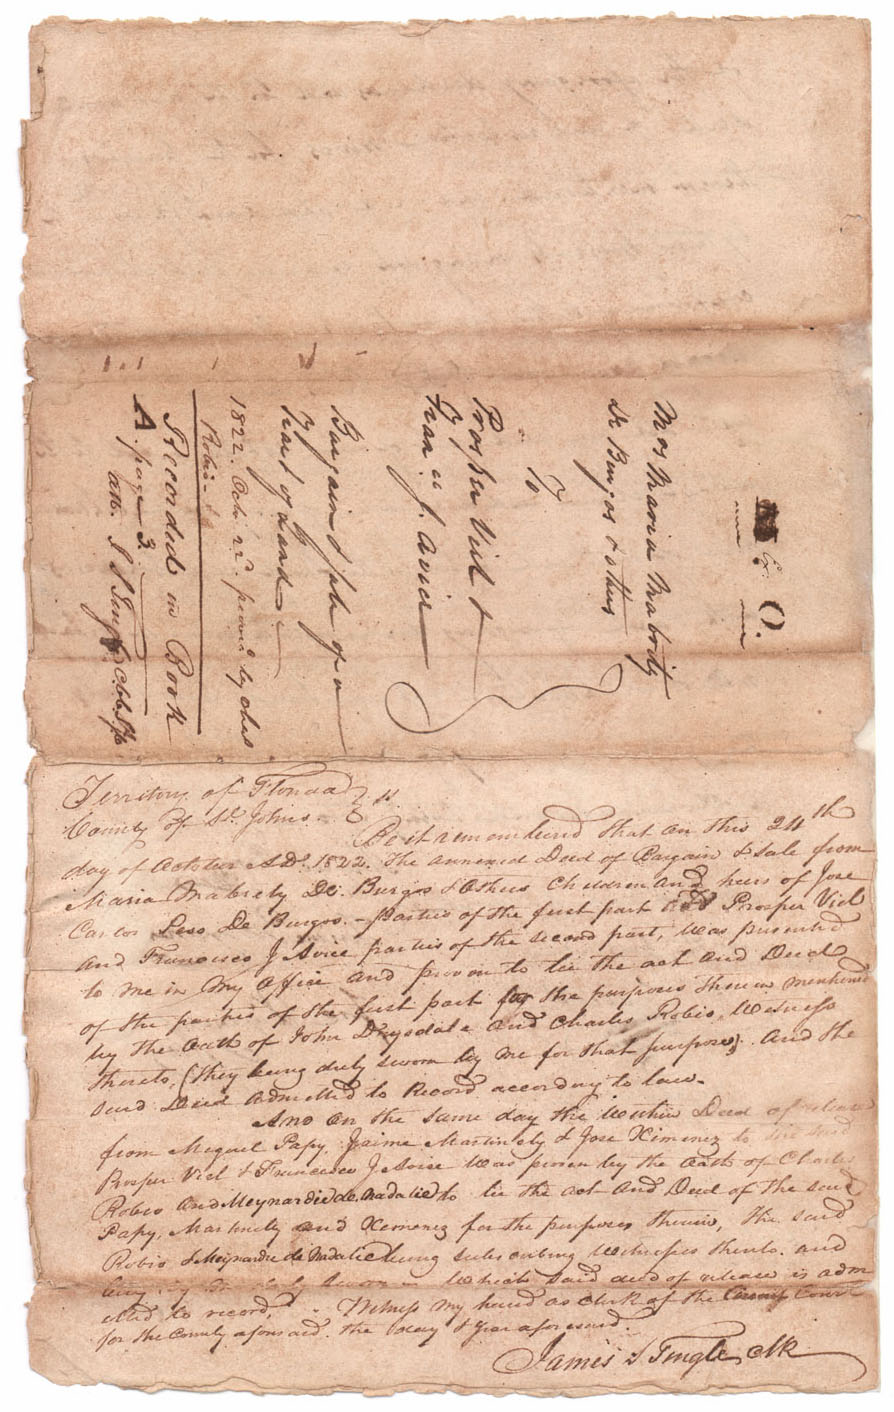 Ex. O.
Mos Maria Mabrity
De Burgos & others
To
Prosper Viel &
Fran co J. Avice
Bargain & Sale of a
Tract of Land
1822. Octr. 22d. proved by Chas
Robio
Recorded in Book
A. page 3.
att. J S Tingle C.Ct. St Js
Territory of Florida } ss
County of St. Johns.
Be it remembered that on this 24th
day of October A.D. 1822. the annexed Deed of Bargain & Sale from
Maria Mabrety De. Burgos & Others Children and heirs of Jose
Carlos Peso De Burgos. - parties of the first part and Prosper Viel
and Francisco J Avice parties of the second part, was presented
to me in my office and proven to be the act and Deed
of the parties of the first part for the purposes therein mentioned
by the Oath of John Drysdale and Charles Robio, Witness
thereto, (they being duly sworn by me for that purpose). and the
said Deed admitted to Record according to law.
And on the same day the within Deed of release
from Miguel Papy, Jaime Martinely & Jose Ximenez to the said
Prosper Viel & Francisco J Avice was proven by the Oath of Charles
Robio and Meynardie de Nadalie to be the act and Deed of the said
Papy, Martinely and Ximenez for the purposes therein, the said
Robio & Meynardie de Nadalie being subscribing Witnesses thereto. and
being by me duly sworn - Which said deed of release is adm
itted to record. - Witness my hand as clerk of the County Court
for the County aforesaid. the day & year aforesaid.
James S Tingle, Clk